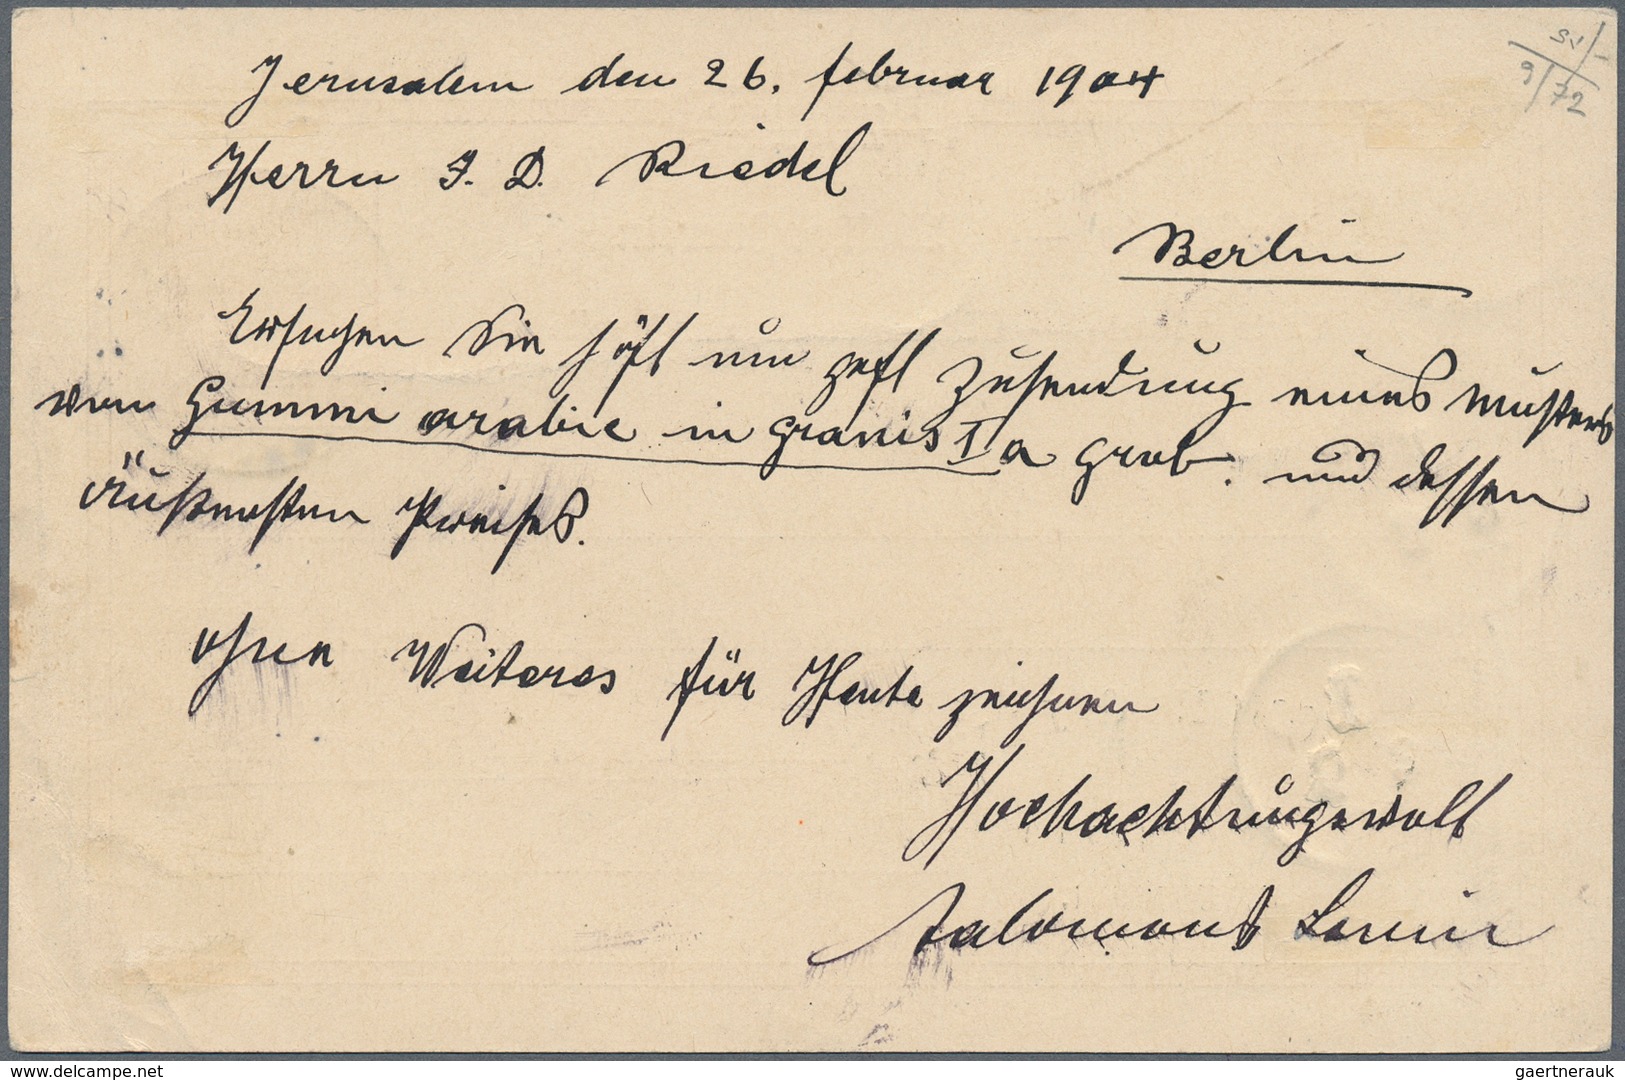 Jerusalem den 26. februar 1904
Herrn J. D. Riedel
Berlin
Ersuchen Sie höfl um gefl Zusendung eines Musters
von Gummi arabic in granis Ia grob. und dessen
äußersten Preises.
Ohne Weiteres für Heute zeichnen
Hochachtungsvoll
Salomon &
9/72
www.delcampe.net
gaertnerauk